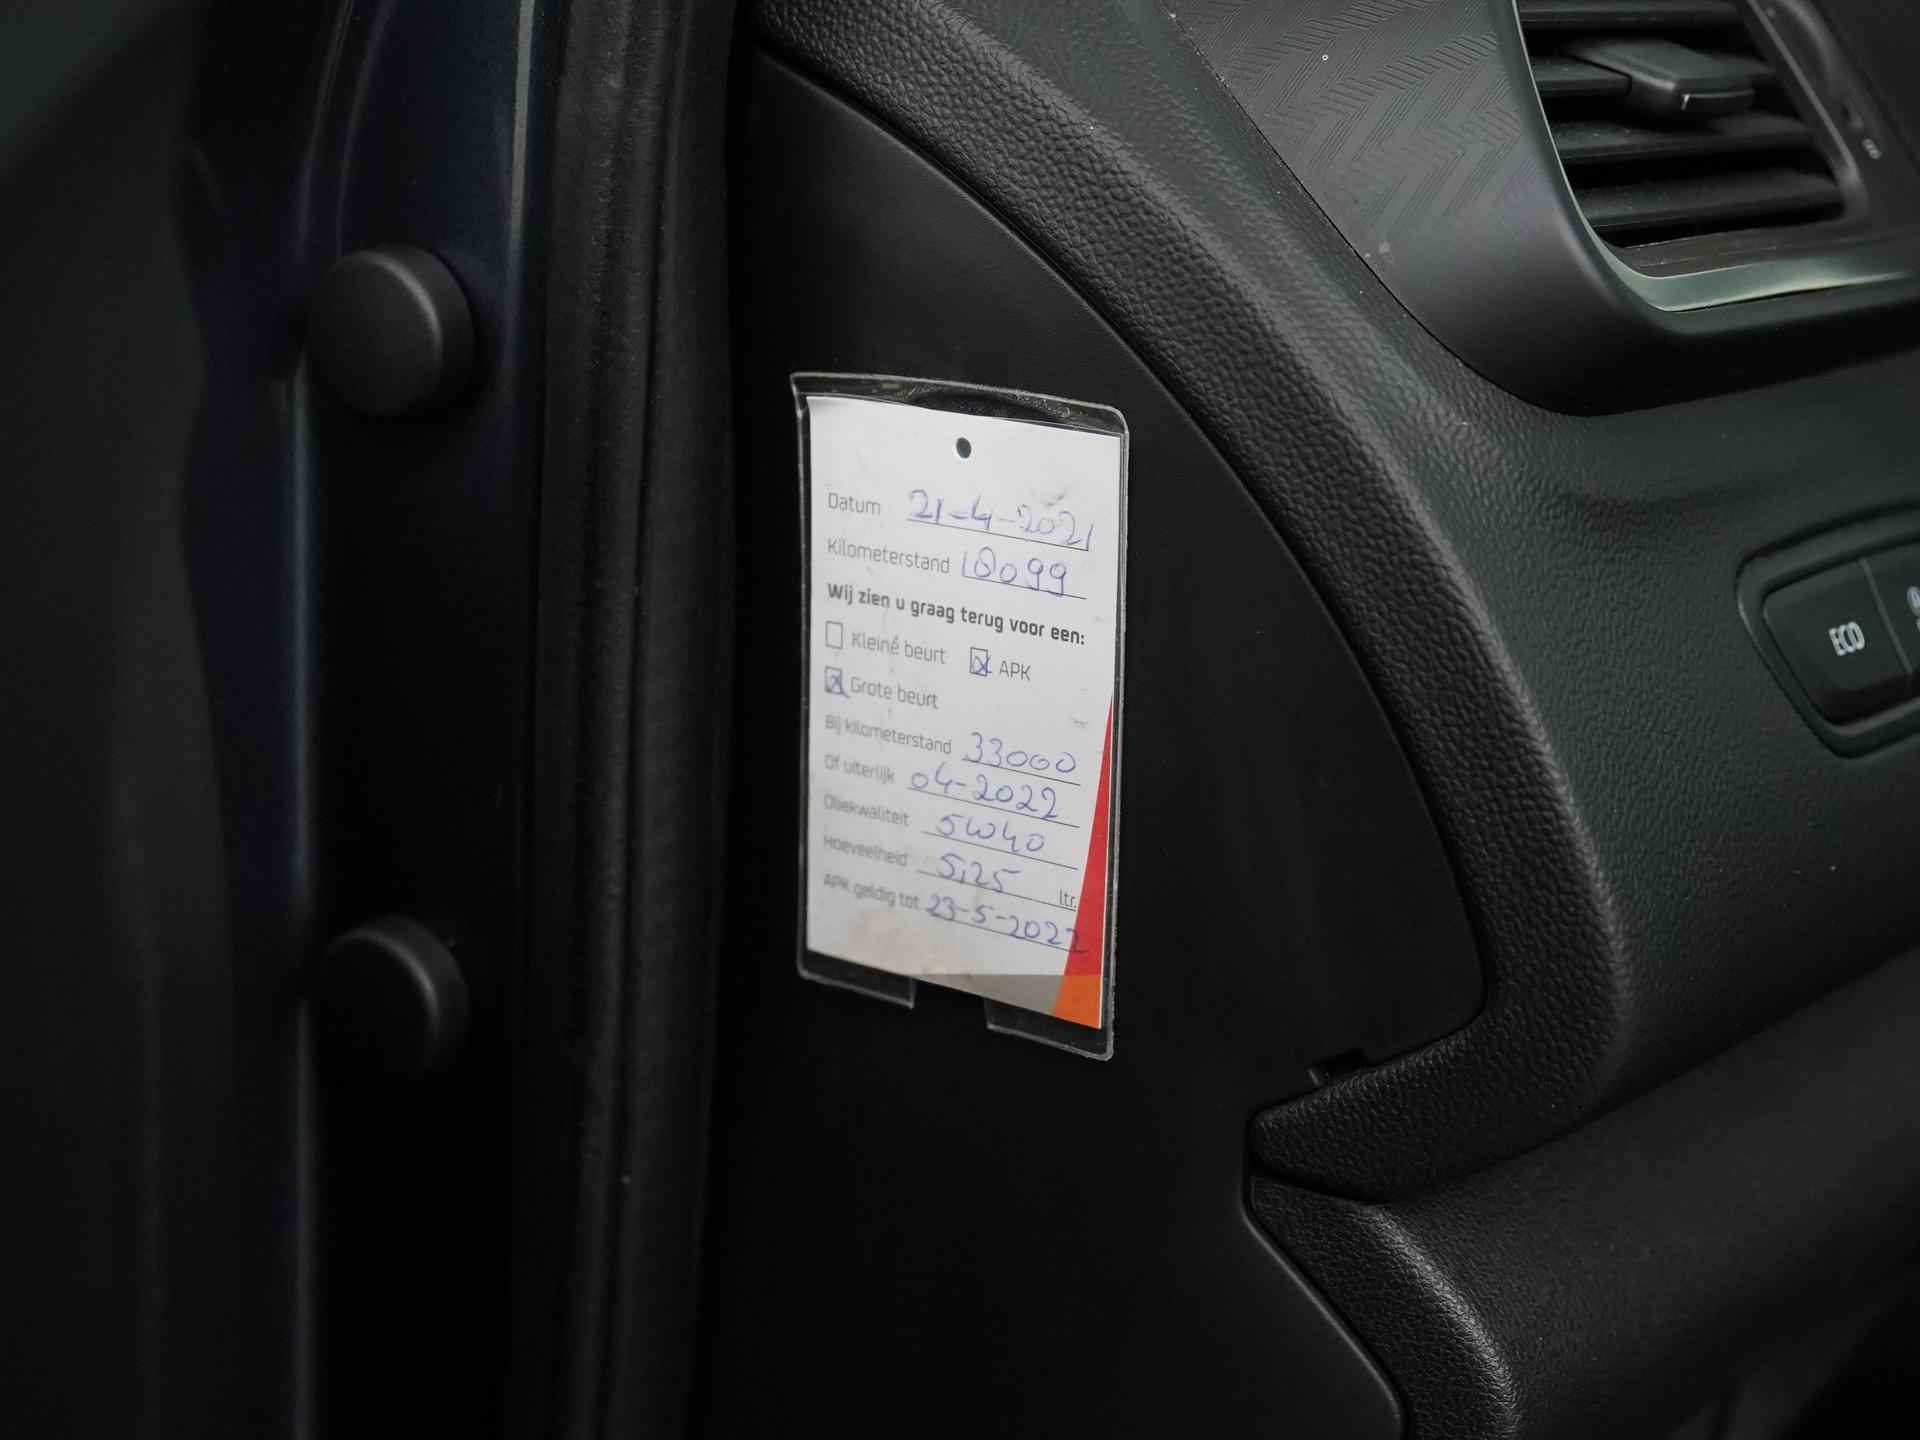 Datum 21-4-2021
Kilometerstand 18099
Wij zien u graag terug voor een:
Kleine beurt APK
Grote beurt
Bij kilometerstand 33000
Of uiterlijk 04-2022
Oliekwaliteit 5W40
Hoeveelheid 5,25 ltr.
APK geldig tot 23-5-2022
ECO